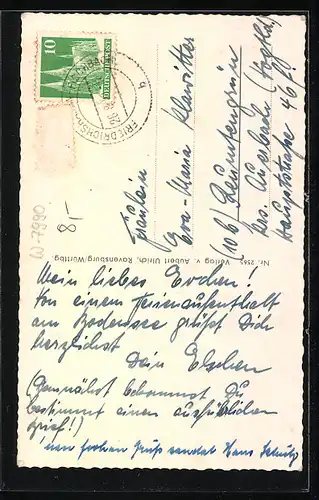 10
DEUTSCHE POST
FRIEDRICHSHAFEN
b
(7990
8,-
Fräulein
Eva-Maria Klawitter
(10b) Reumtengrün
Krs. Auerbach (Vogtld.)
Hauptstraße 46 f.
Nr. 2565 Verlag v. Aubert Ulrich, Ravensburg/Württbg.
Mein liebes Evchen!
Von einem Ferienaufenthalt
am Bodensee grüßt Dich
herzlichst
Dein Elschen
(Demnächst bekommst Du
bestimmt einen ausführlichen
Brief!)
frohen Gruß sendet Hans